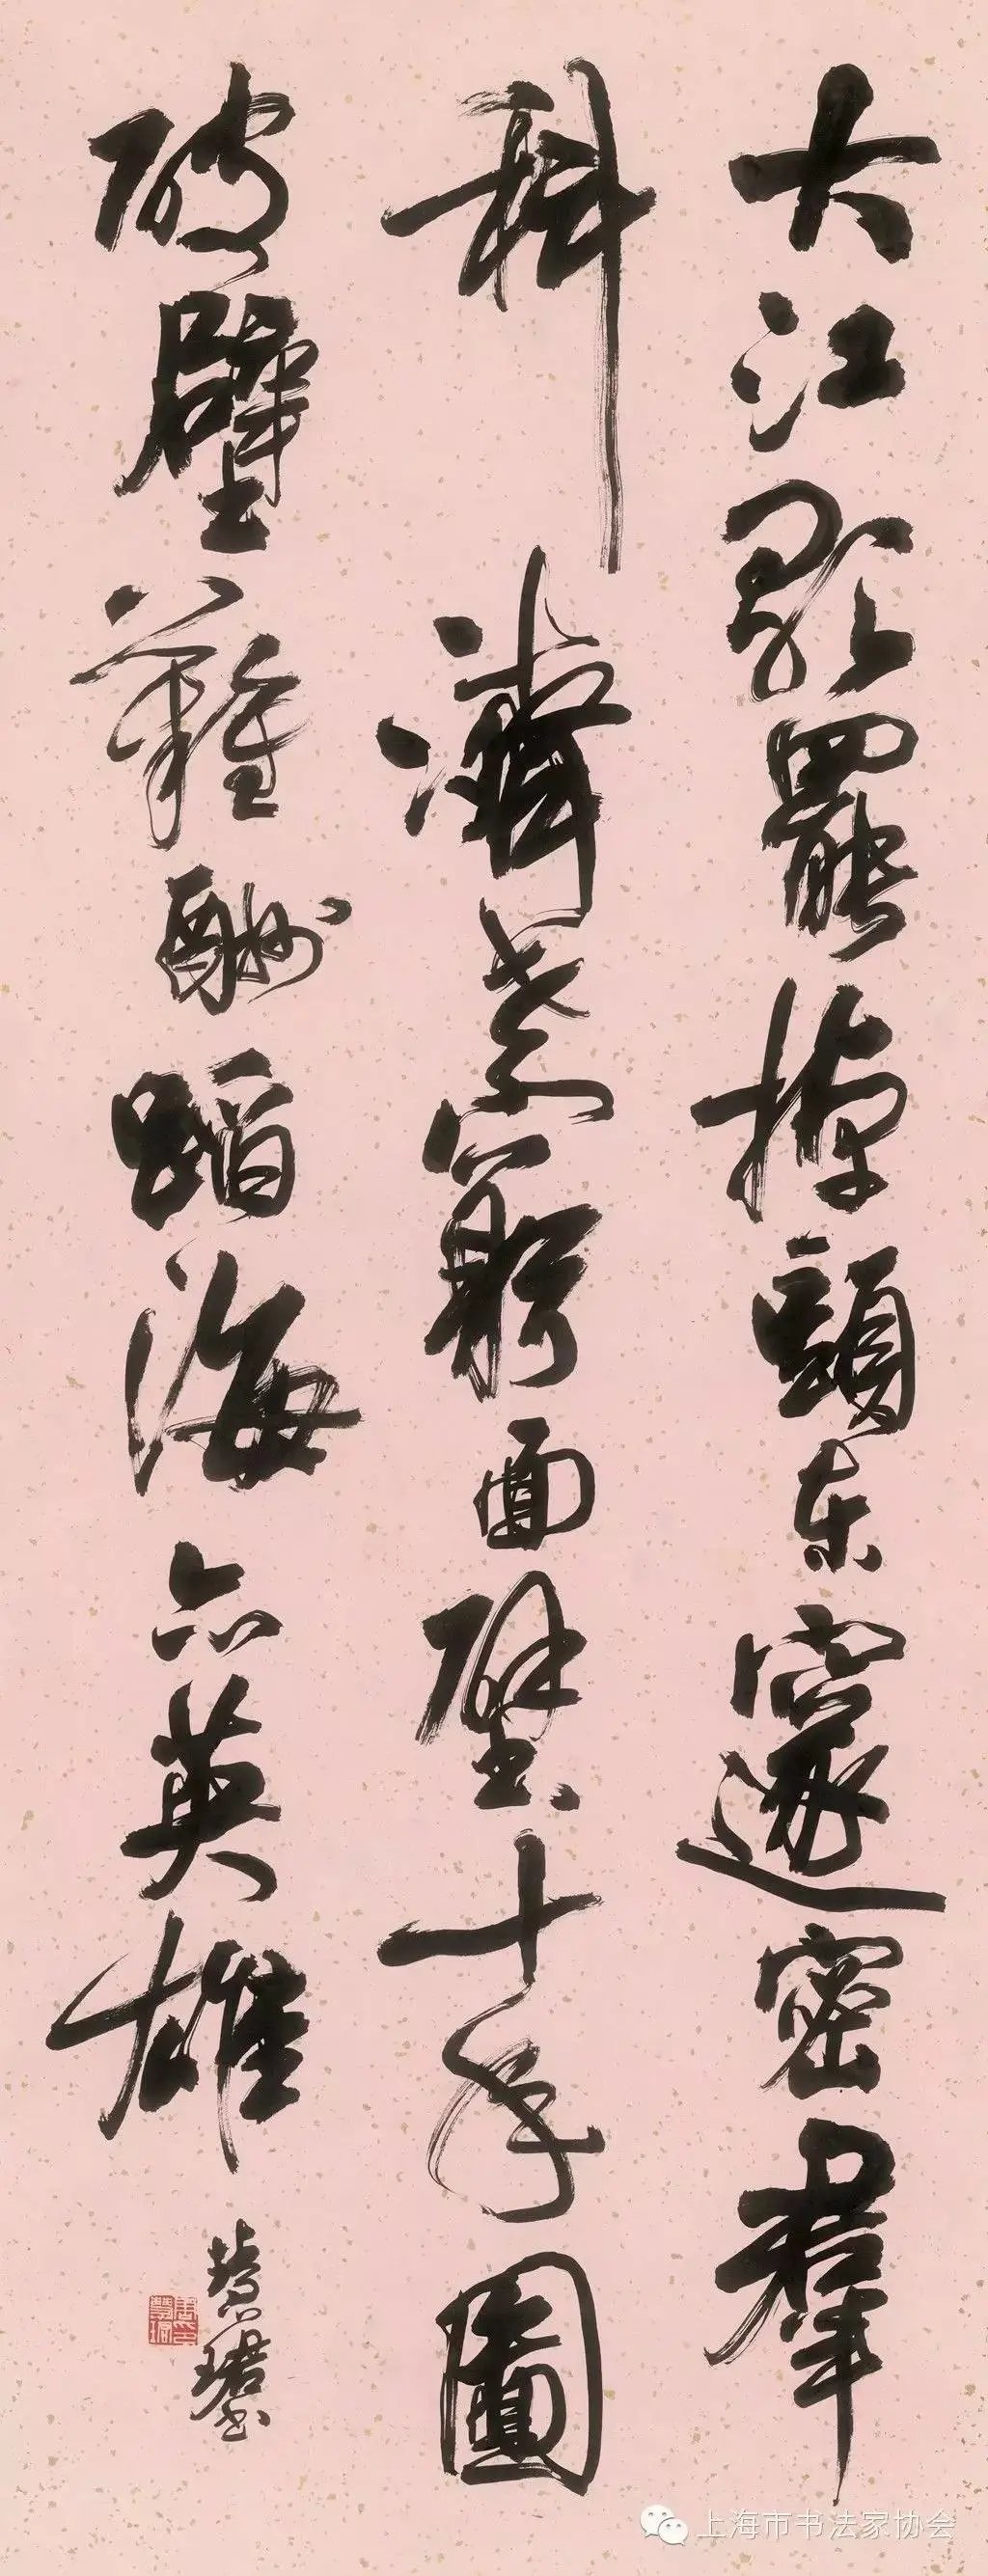 大江歌罷掉頭東邃密群
科濟世窮面壁十年圖
破壁難酬蹈海亦英雄
上海市书法家协会